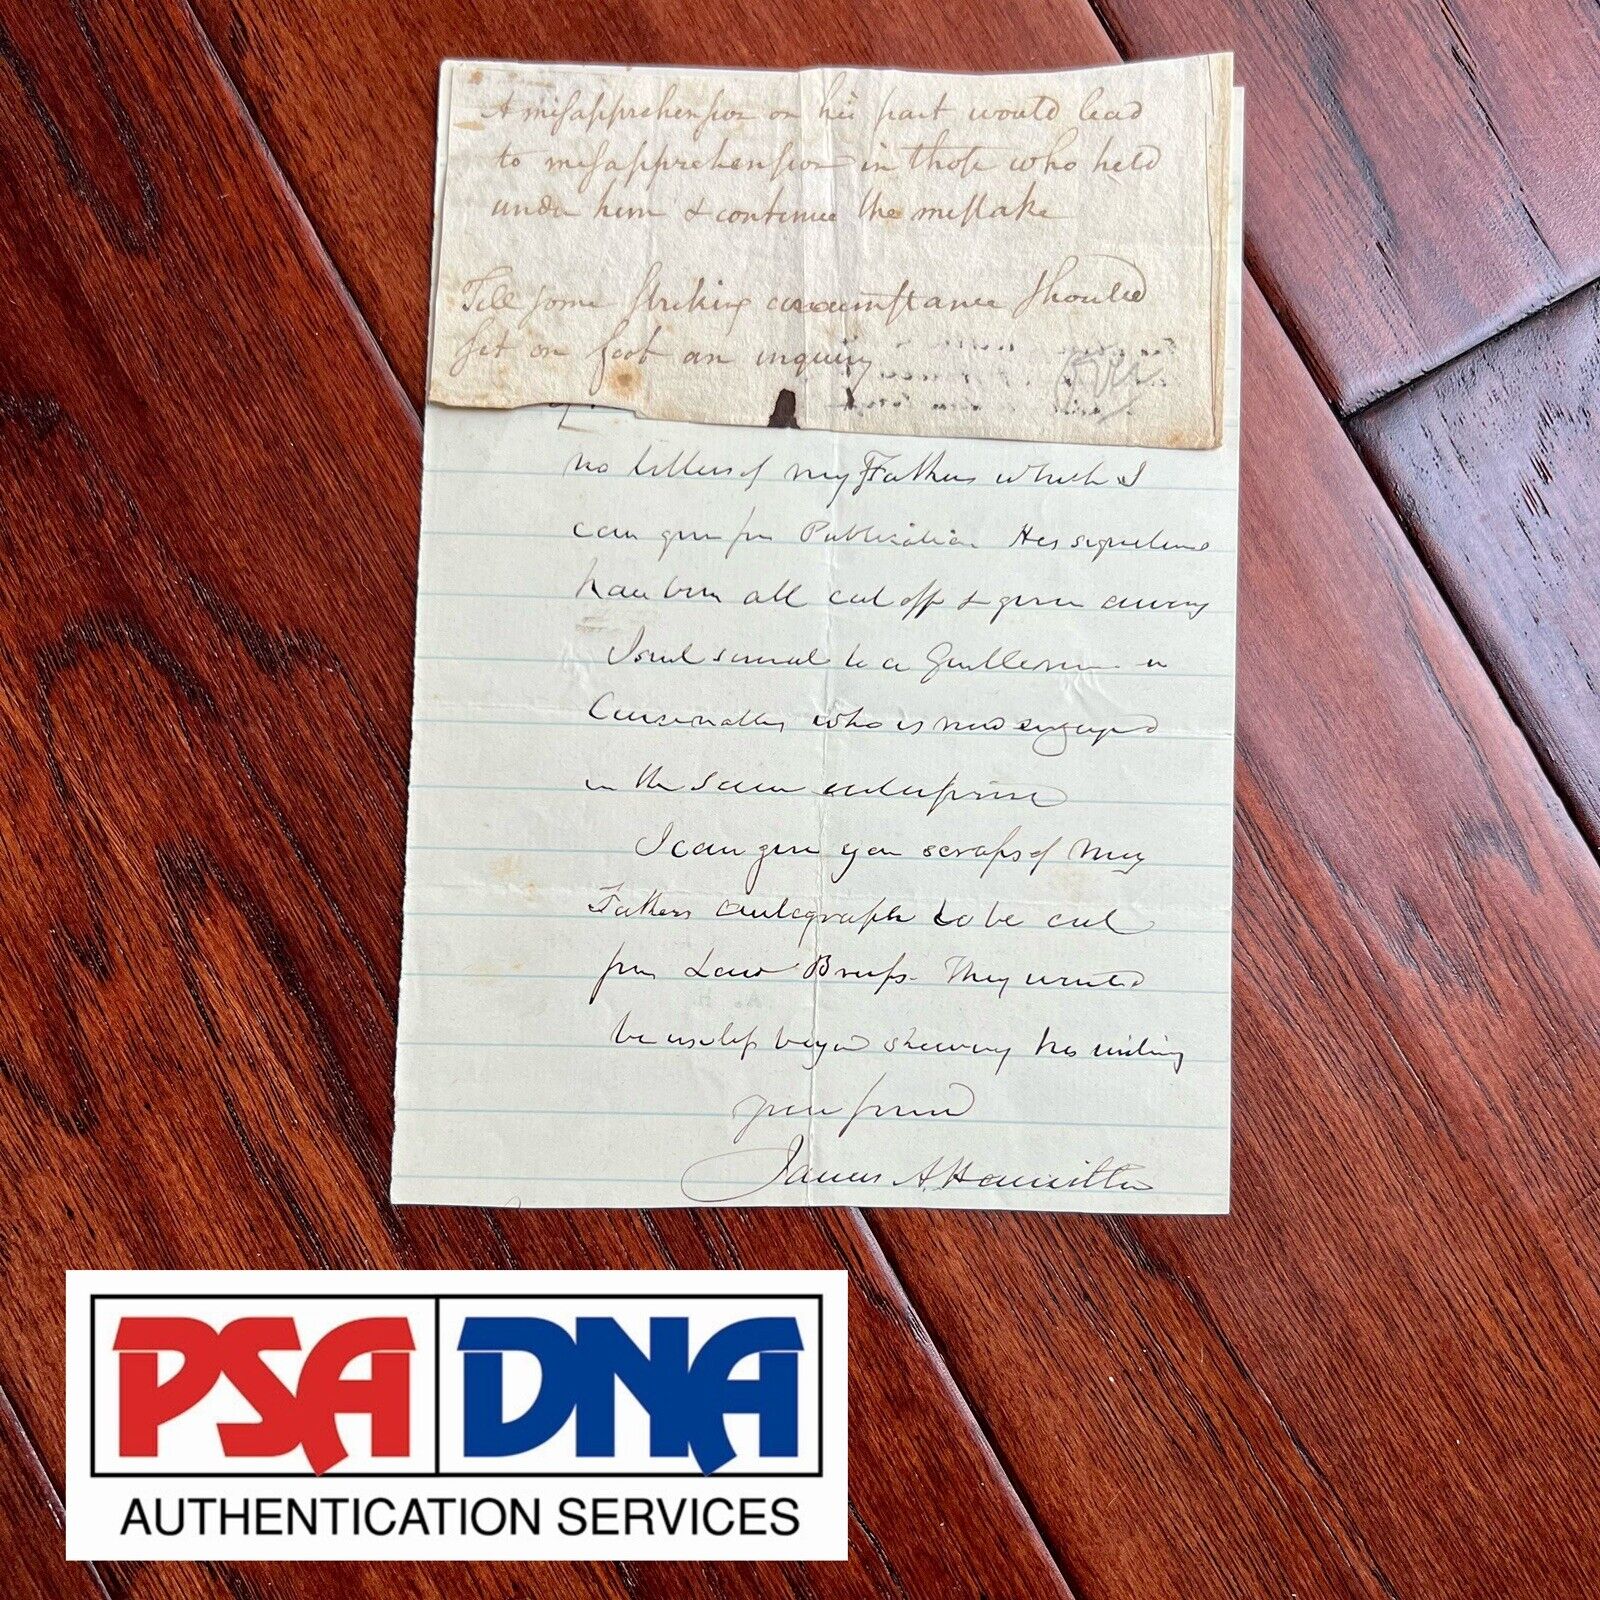 A misapprehension on his part would lead
to misapprehension in those who held
under him & continue the mistake
Till some striking circumstance should
set on foot an inquiry
no letters of my Fathers which I
can give for Publication His signatures
have been all cut off & given away
I sent several to a Gentleman in
Cincinnatti who is now engaged
in the same enterprise
I can give you scraps of my
Fathers autograph to be cut
from Law Briefs. They would
be useless beyond shewing his writing
your friend
James A. Hamilton
PSA DNA
AUTHENTICATION SERVICES